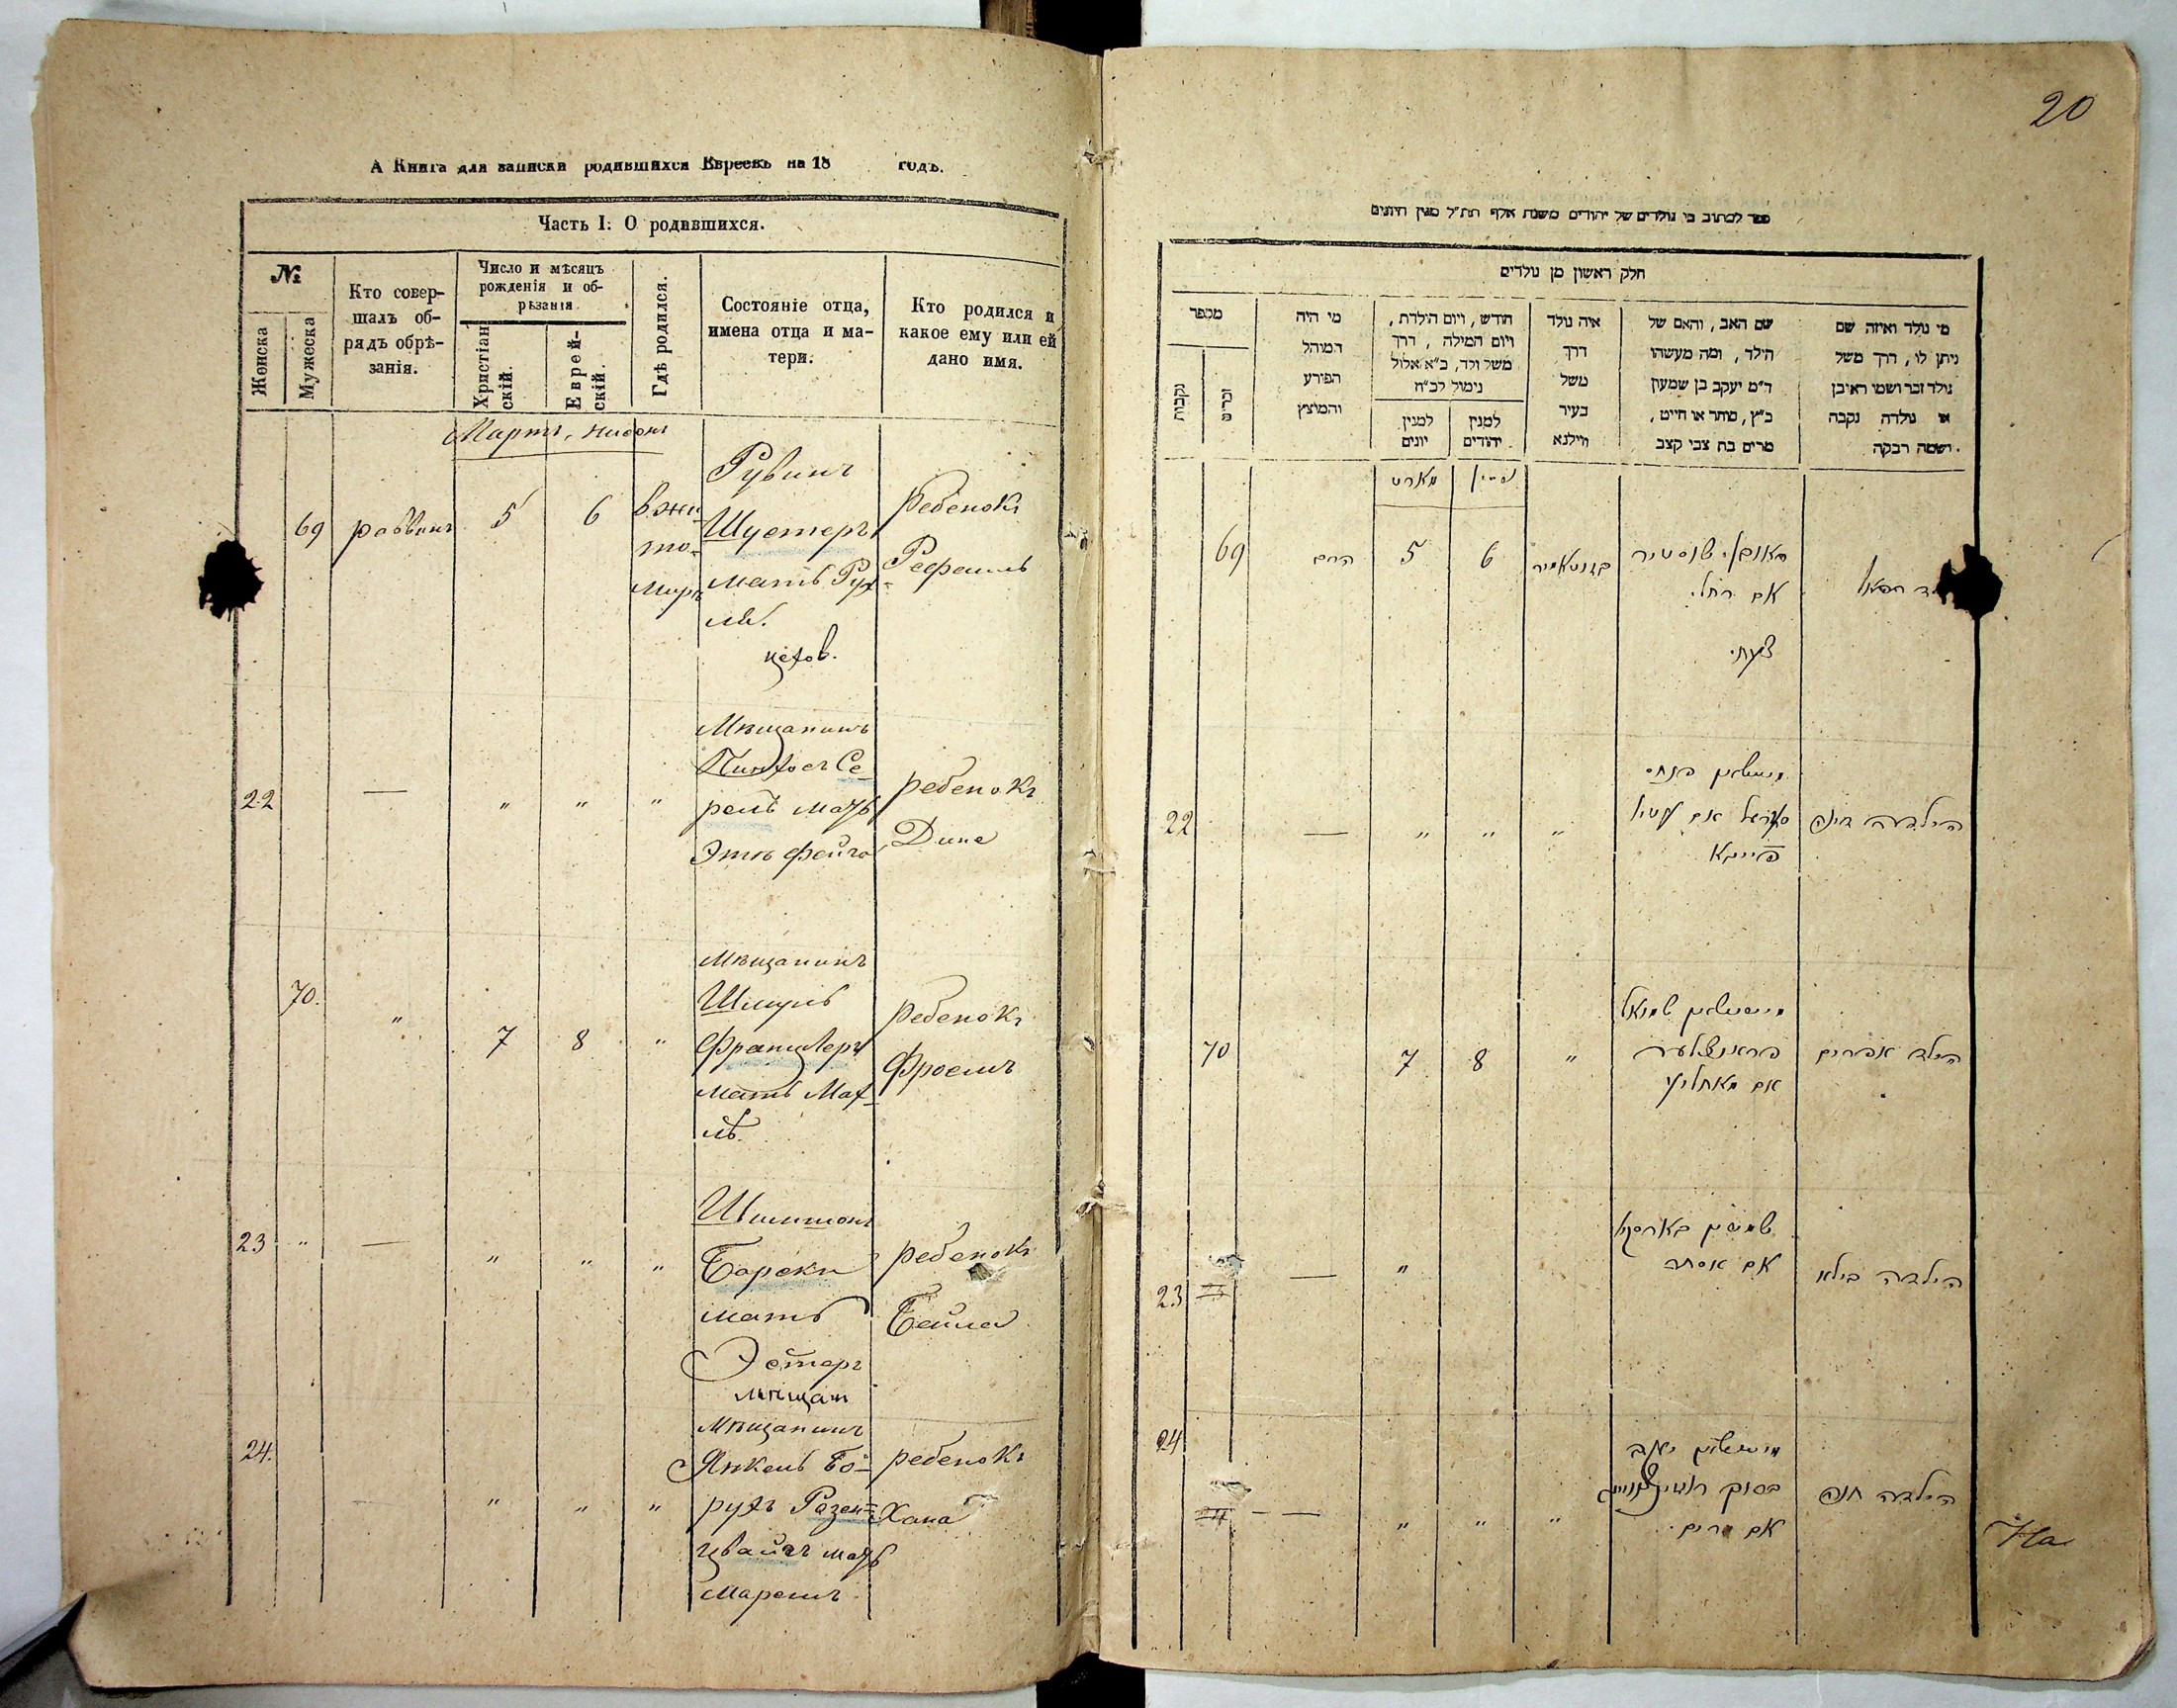 А Книга для записки родившихся Евреевъ на 18 годъ.
Часть I: О родившихся.
№
Женска
Мужеска
Кто совер-
шалъ об-
рядъ обрѣ-
занія.
Число и мѣсяцъ
рожденія и об-
рѣзанія
Христіан
скій.
Еврей-
скій.
Гдѣ родился.
Состояніе отца,
имена отца и ма-
тери.
Кто родился и
какое ему или ей
дано имя.
Мартъ, Нисонъ
69 раввинъ 5 6 в жи
то-
миръ
Рувинъ
Шустеръ
мать Рух-
ля.
цехов.
ребенокъ
Рефаиль
22 — " " "
Мѣщанинъ
Пинхос Се-
рель мать
Этя Фейга
ребенокъ
Дина
70. " 7 8 "
Мѣщанинъ
Шмуль
Францлеръ
мать Мах-
ля.
ребенокъ
Фроимъ
23 " — " " "
Шимшонъ
Барски
мать
Эстеръ
мѣщан
ребенокъ
Бейла
24. — " " "
Мѣщанинъ
Янкель Бо-
рухъ Розен-
цвайгъ мать
Маремъ
ребенокъ
Хана
20
ספר לכתוב בו נולדים של יהודים משנת אלף תת״ל מנין היונים
חלק ראשון מן נולדים
מספר
נקבות
זכרים
מי היה
המוהל
הפורע
והמוצץ
חודש, ויום הולדת,
ויום המילה, דרך
משל ולד, כ״א אלול
נימול לכ״ח
למנין
יונים
למנין
יהודים
איה נולד
דרך
משל
בעיר
ווילנא
שם האב, והאם של
הילד, ומה מעשהו
ד״מ יעקב בן שמעון
כ״ץ, סוחר או חייט,
מרים בת צבי קצב
מי נולד ואיזה שם
ניתן לו, דרך משל
נולד זכר ושמו ראובן
או נולדה נקבה
ושמה רבקה.
מארט ניסן
69 הרב 5 6
ראובן שוסטיר
אם רחל
רפאל
22 — " " "
פנחס
אם
פייגא
הילדה דינה
70 7 8 "
שמואל
פראנצלער
אם מאחליע
הילד אפרים
23 — "
שמשון בארסקי
אם אסתר
הילדה בילא
24 — — " " "
יעקב
ברוך
אם מרים
הילדה חנה
На